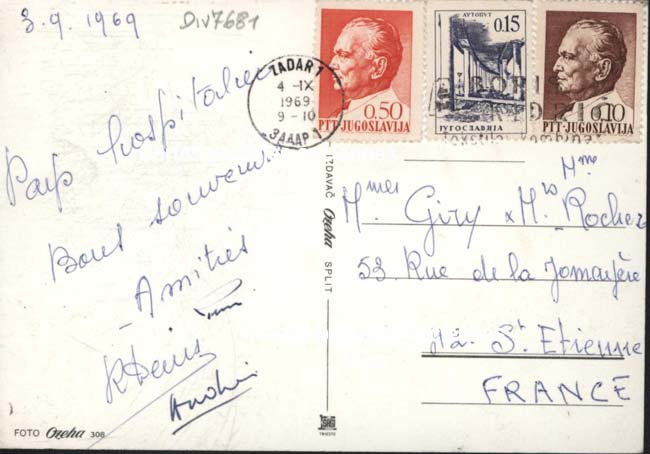 3.9.1969
Div7681
ZADAR 1
4 -IX
1969
9 - 10
ЗАДАР 1
0.50
PTT-JUGOSLAVIJA
АУТОПУТ
0.15
ЈУГОСЛАВИЈА
0.10
PTT-JUGOSLAVIJA
Pays hospitalier
Bons souvenirs
Amitiés
Denis
IZDAVAČ Ozeha SPLIT
Mme
Mmes Giry & Rocher
53 Rue de la
St Etienne
FRANCE
FOTO Ozeha 308